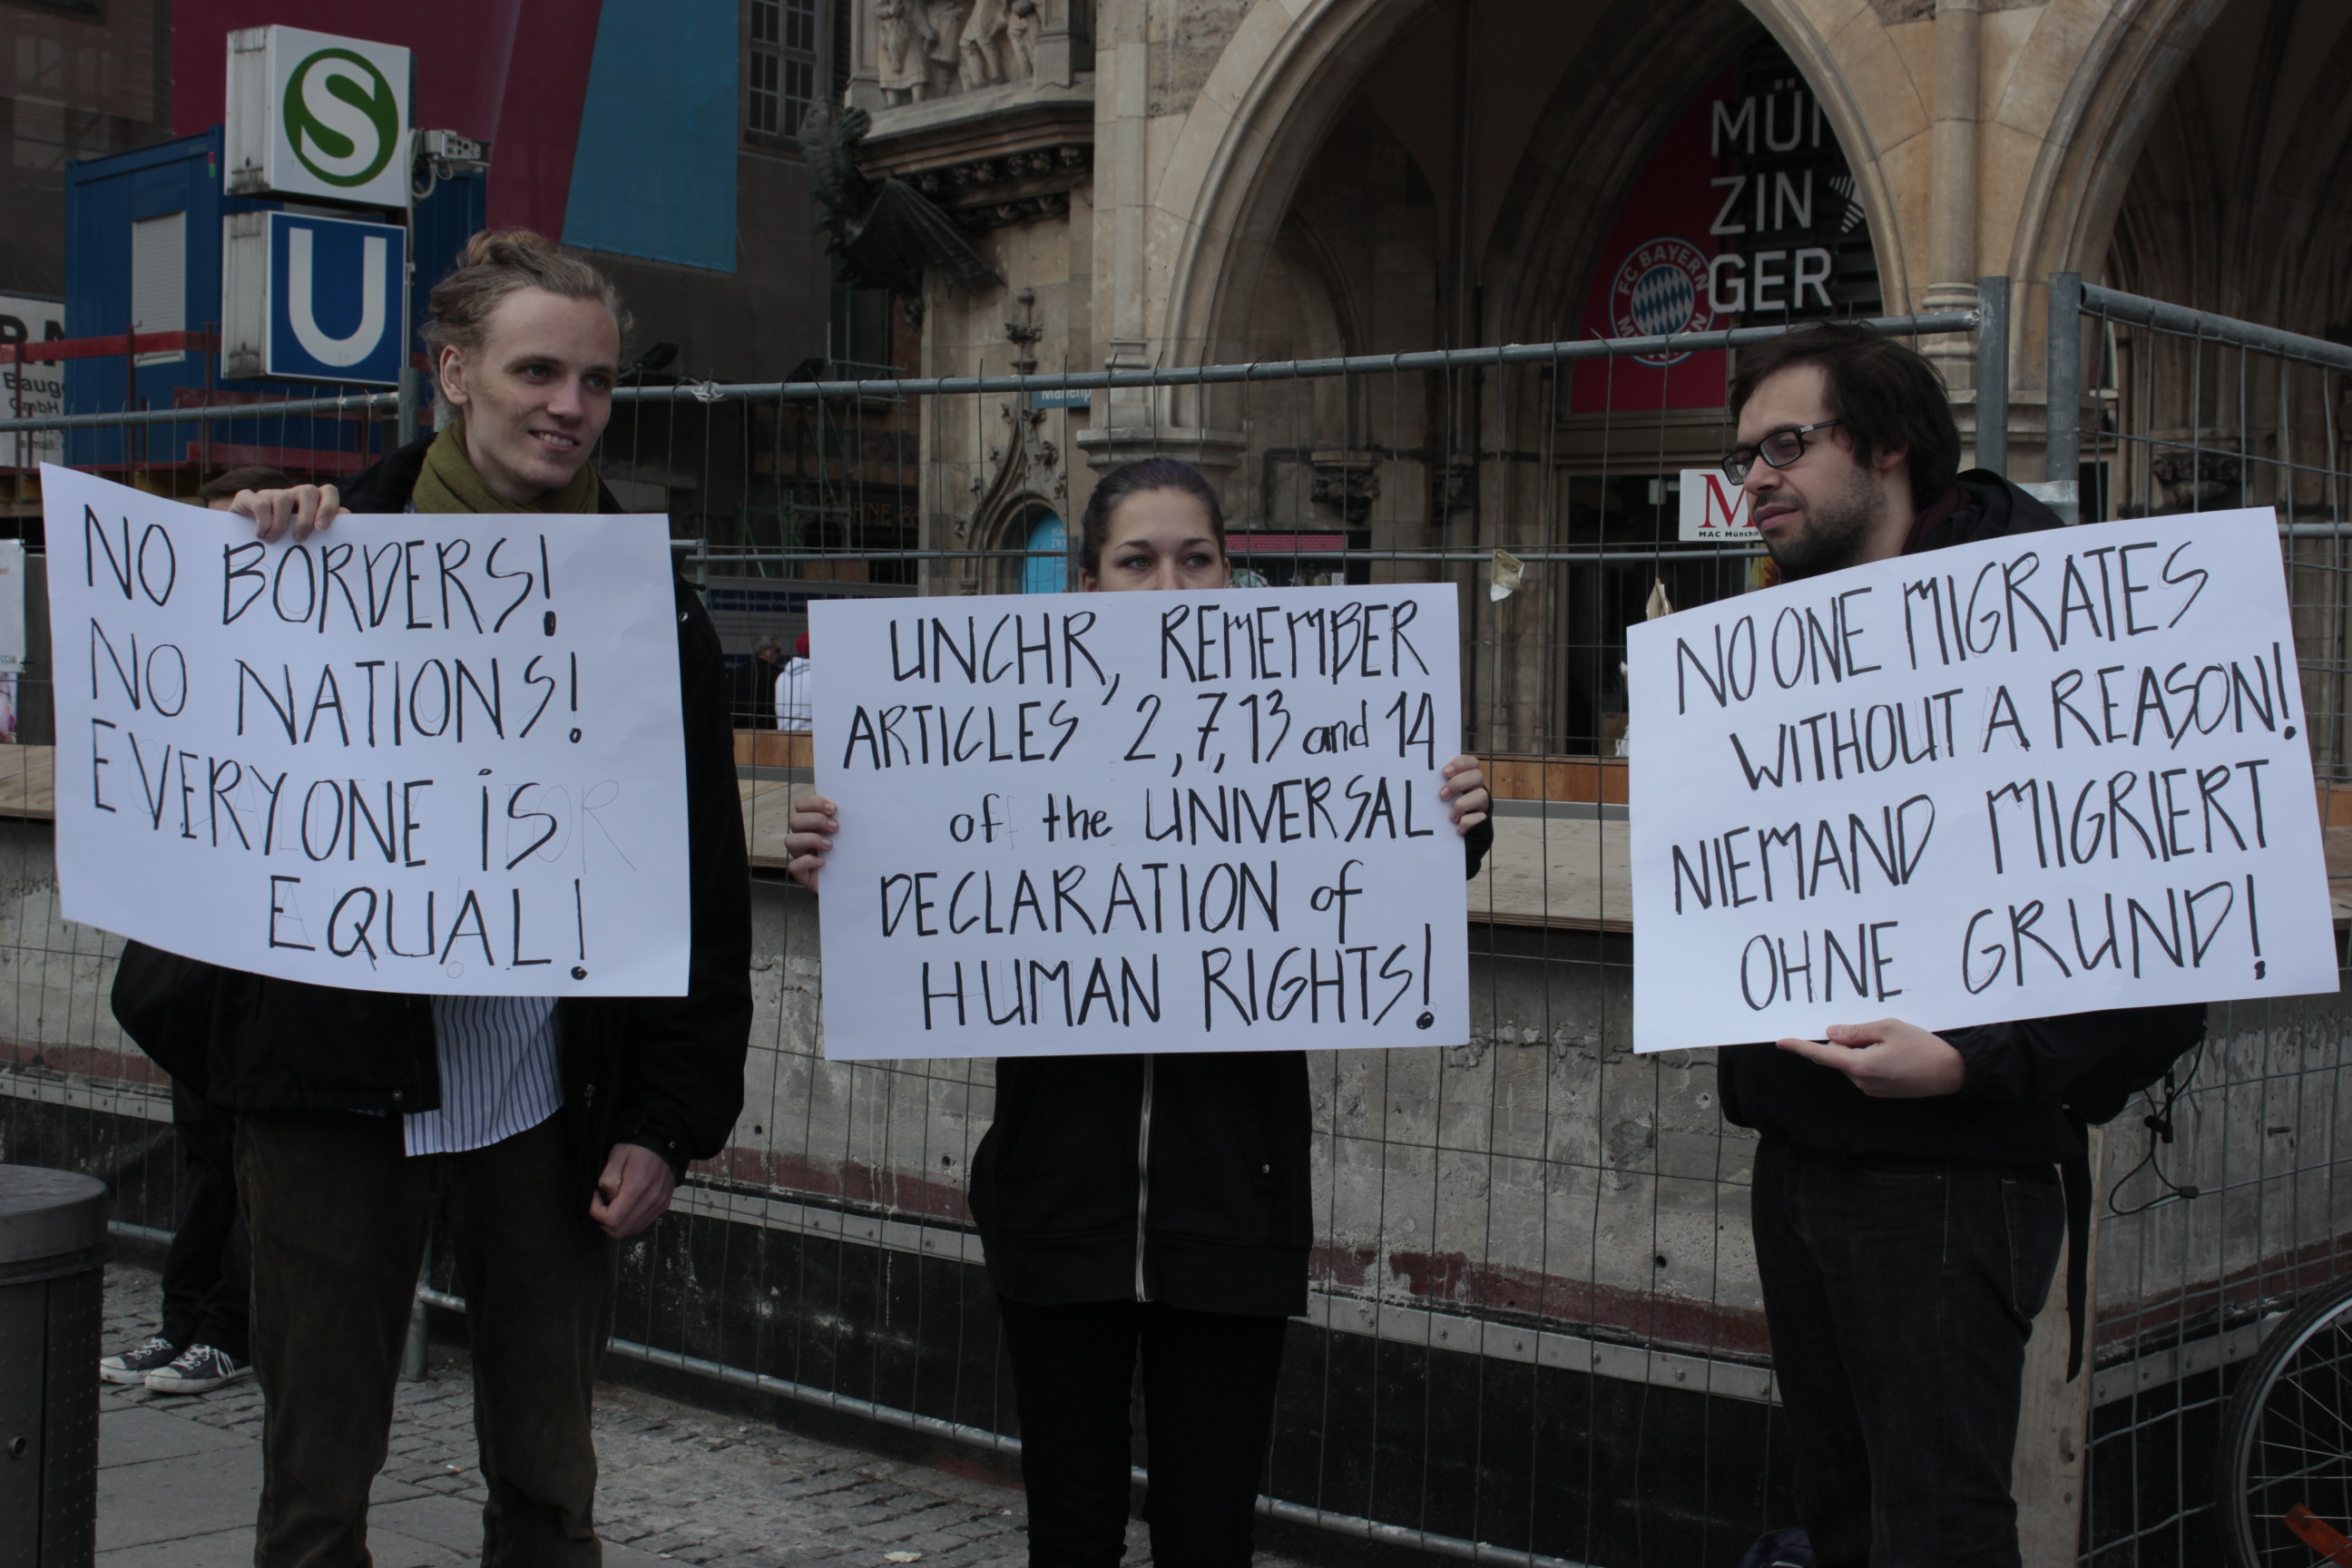 S
U
Baug
GmbH
MÜN
ZIN
GER
FC BAYERN
Marienp
M
MAC Münch
NO BORDERS!
NO NATIONS!
EVERYONE iS
EQUAL!
UNCHR, REMEMBER
ARTICLES 2, 7, 13 and 14
of the UNIVERSAL
DECLARATION of
HUMAN RIGHTS!
NO ONE MIGRATES
WITHOUT A REASON!
NIEMAND MIGRIERT
OHNE GRUND!